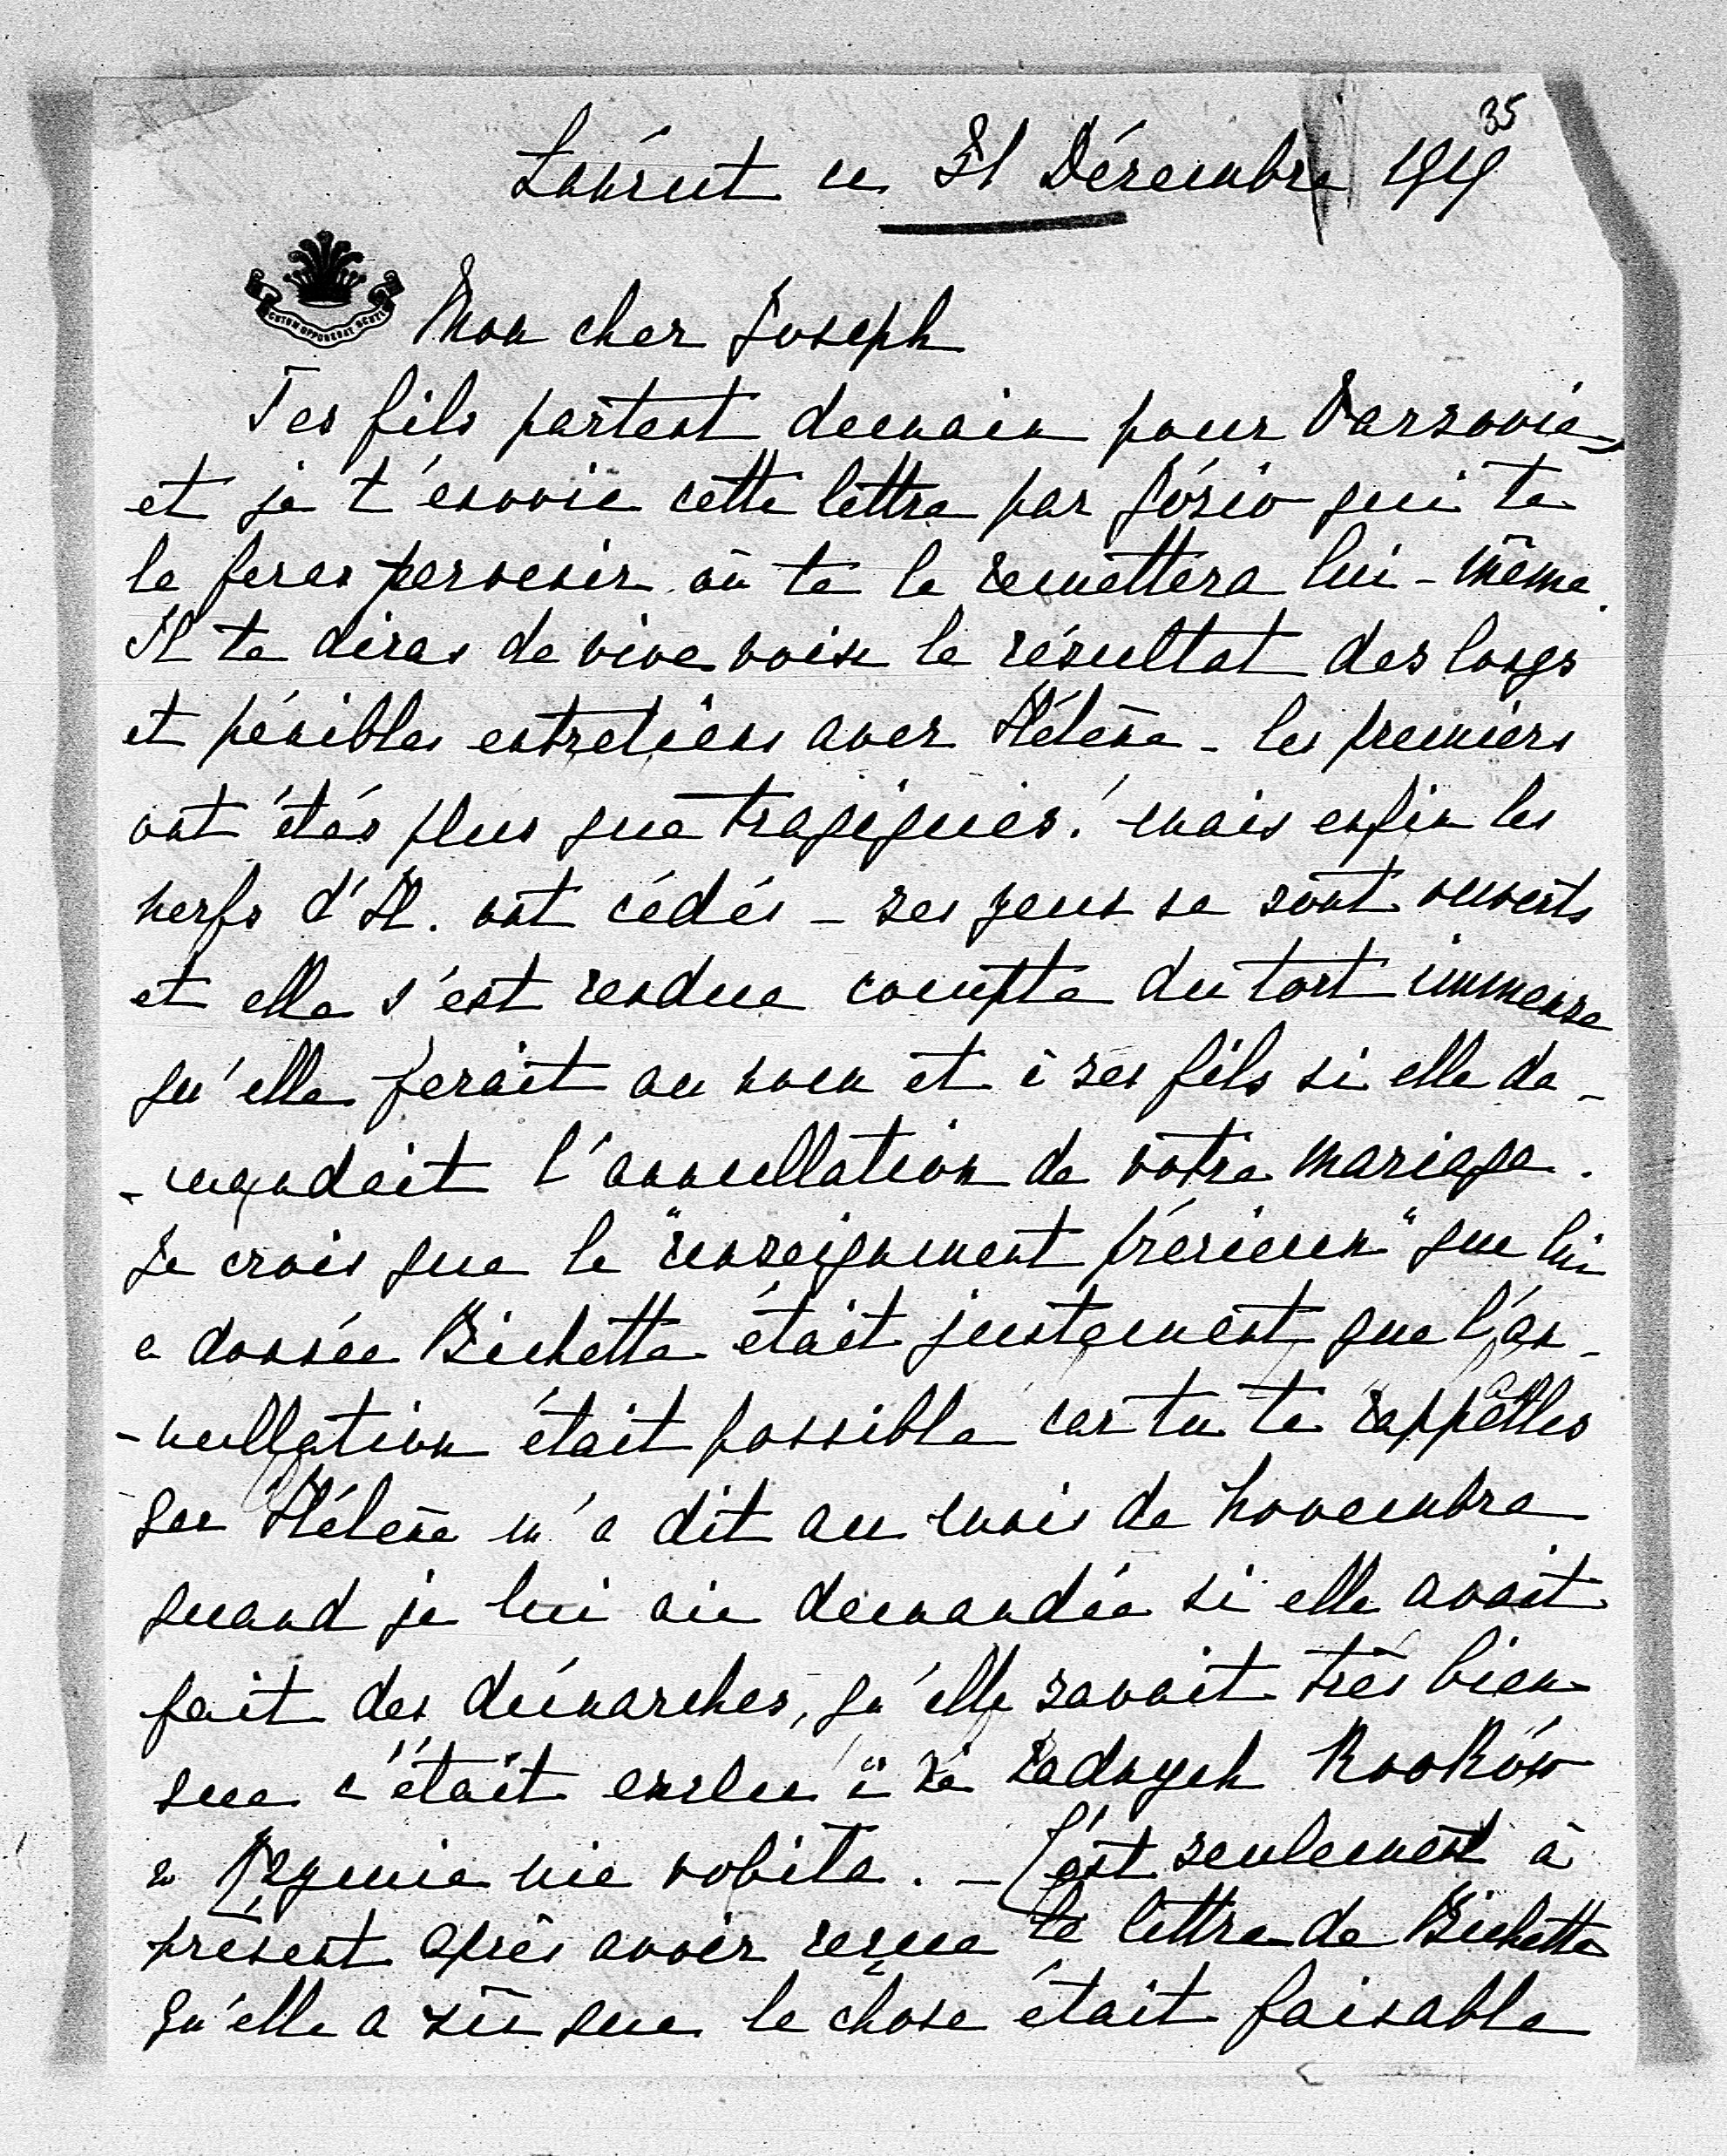 35
Łańcut ce 31 Décembre 1919
SCUTUM OPPONEBAT SCUTIS
Mon cher Joseph
Tes fils partent demain pour Varsovie,
et je t'envoie cette lettre par Józio qui te
la feras parvenir où te la remettera lui-même.
Il te diras de vive voix le résultat des longs
et pénibles entretiens avec Hélène - les premiers
ont étés plus que tragiques! mais enfin les
nerfs d'H. ont cédés - ses yeux se sont ouverts
et elle s'est rendue compte du tort immense
qu'elle ferait au nom et à ses fils si elle de-
-mandait l'annullation de votre mariage.
Je crois que le "renseignement précieux" que lui
a donnée Bichette était justement que l'an-
-nullation était possible car tu te rappelles
que Hélène m'a dit au mois de novembre
quand je lui aie demandée si elle avait
fait des démarches, qu'elle savait très bien
que c'était exclu "i że żadnych kroków
w Rzymie nie robiła. - C'est seulement à
présent après avoir reçue la lettre de Bichette
qu'elle a sû que la chose était faisable